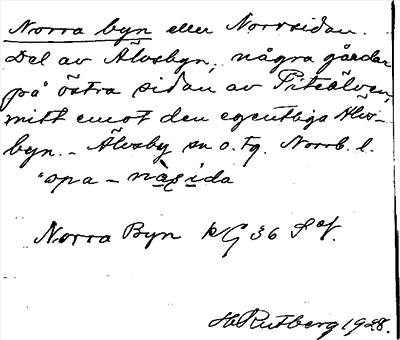 Norra byn eller Norrsidan.
Del av Älvsbyn, några gårdar
på östra sidan av Piteälven,
mitt emot den egentliga Älvs-
byn. - Älvsby sn o. tg. Norrb. l.
opa - nǫṣida
Norra Byn kG 36
H Rutberg 1928.